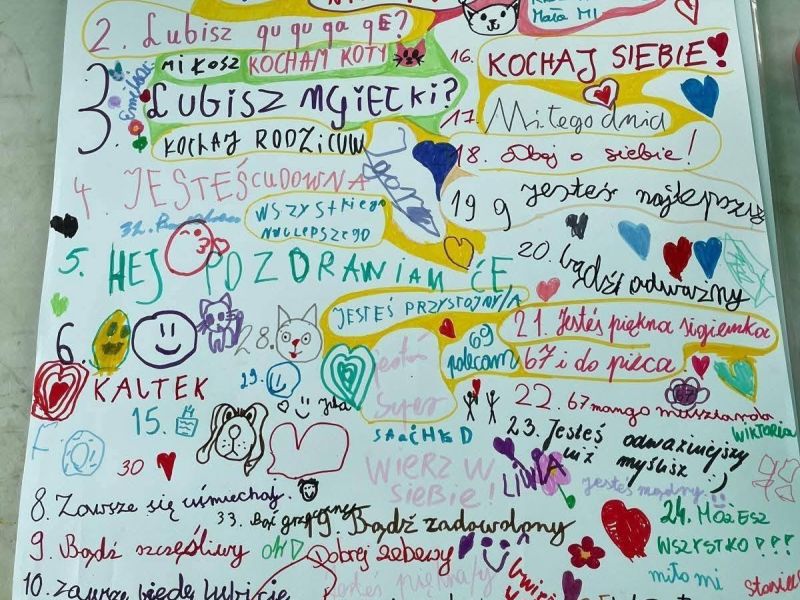 Mała MI
2. Lubisz qu qu ga gE?
MiŁOSZ KOCHAM KOTY
16. KOCHAJ SIEBIE!
3. LUBISZ MGIEŁKI?
17. Miłego dnia
KOCHAJ RODZICUW
18. Dbaj o siebie!
4. JESTEŚ CUDOWNA
19 Jesteś najlepszy
WSZYSTKIEGO
NAJLEPSZEGO
20. bądź odważny
5. HEJ POZDRAWIAM ĆE
JESTEŚ PRZYSTOJNY/A
21. Jesteś piękna sigiemka
6.
28.
69
polecam
67 i do pieca.
jesteś
super
KALTEK
29.
22. 67 mango musztarda
15.
23. Jesteś odważniejszy
niż myślisz :)
WIKTORIA
SAACHED
30
WIERZ W
SIEBIE!
LIWIA
jesteś mądny
8. Zawsze się uśmiechaj.
33. Bąć
19. Bądź zadowolony
24. MOŻESZ
WSZYSTKO!!!
9. Bądź szczęśliwy
Dobrej zabawy
miło mi
10. zawsze będę lubicie
jesteś piękna/y